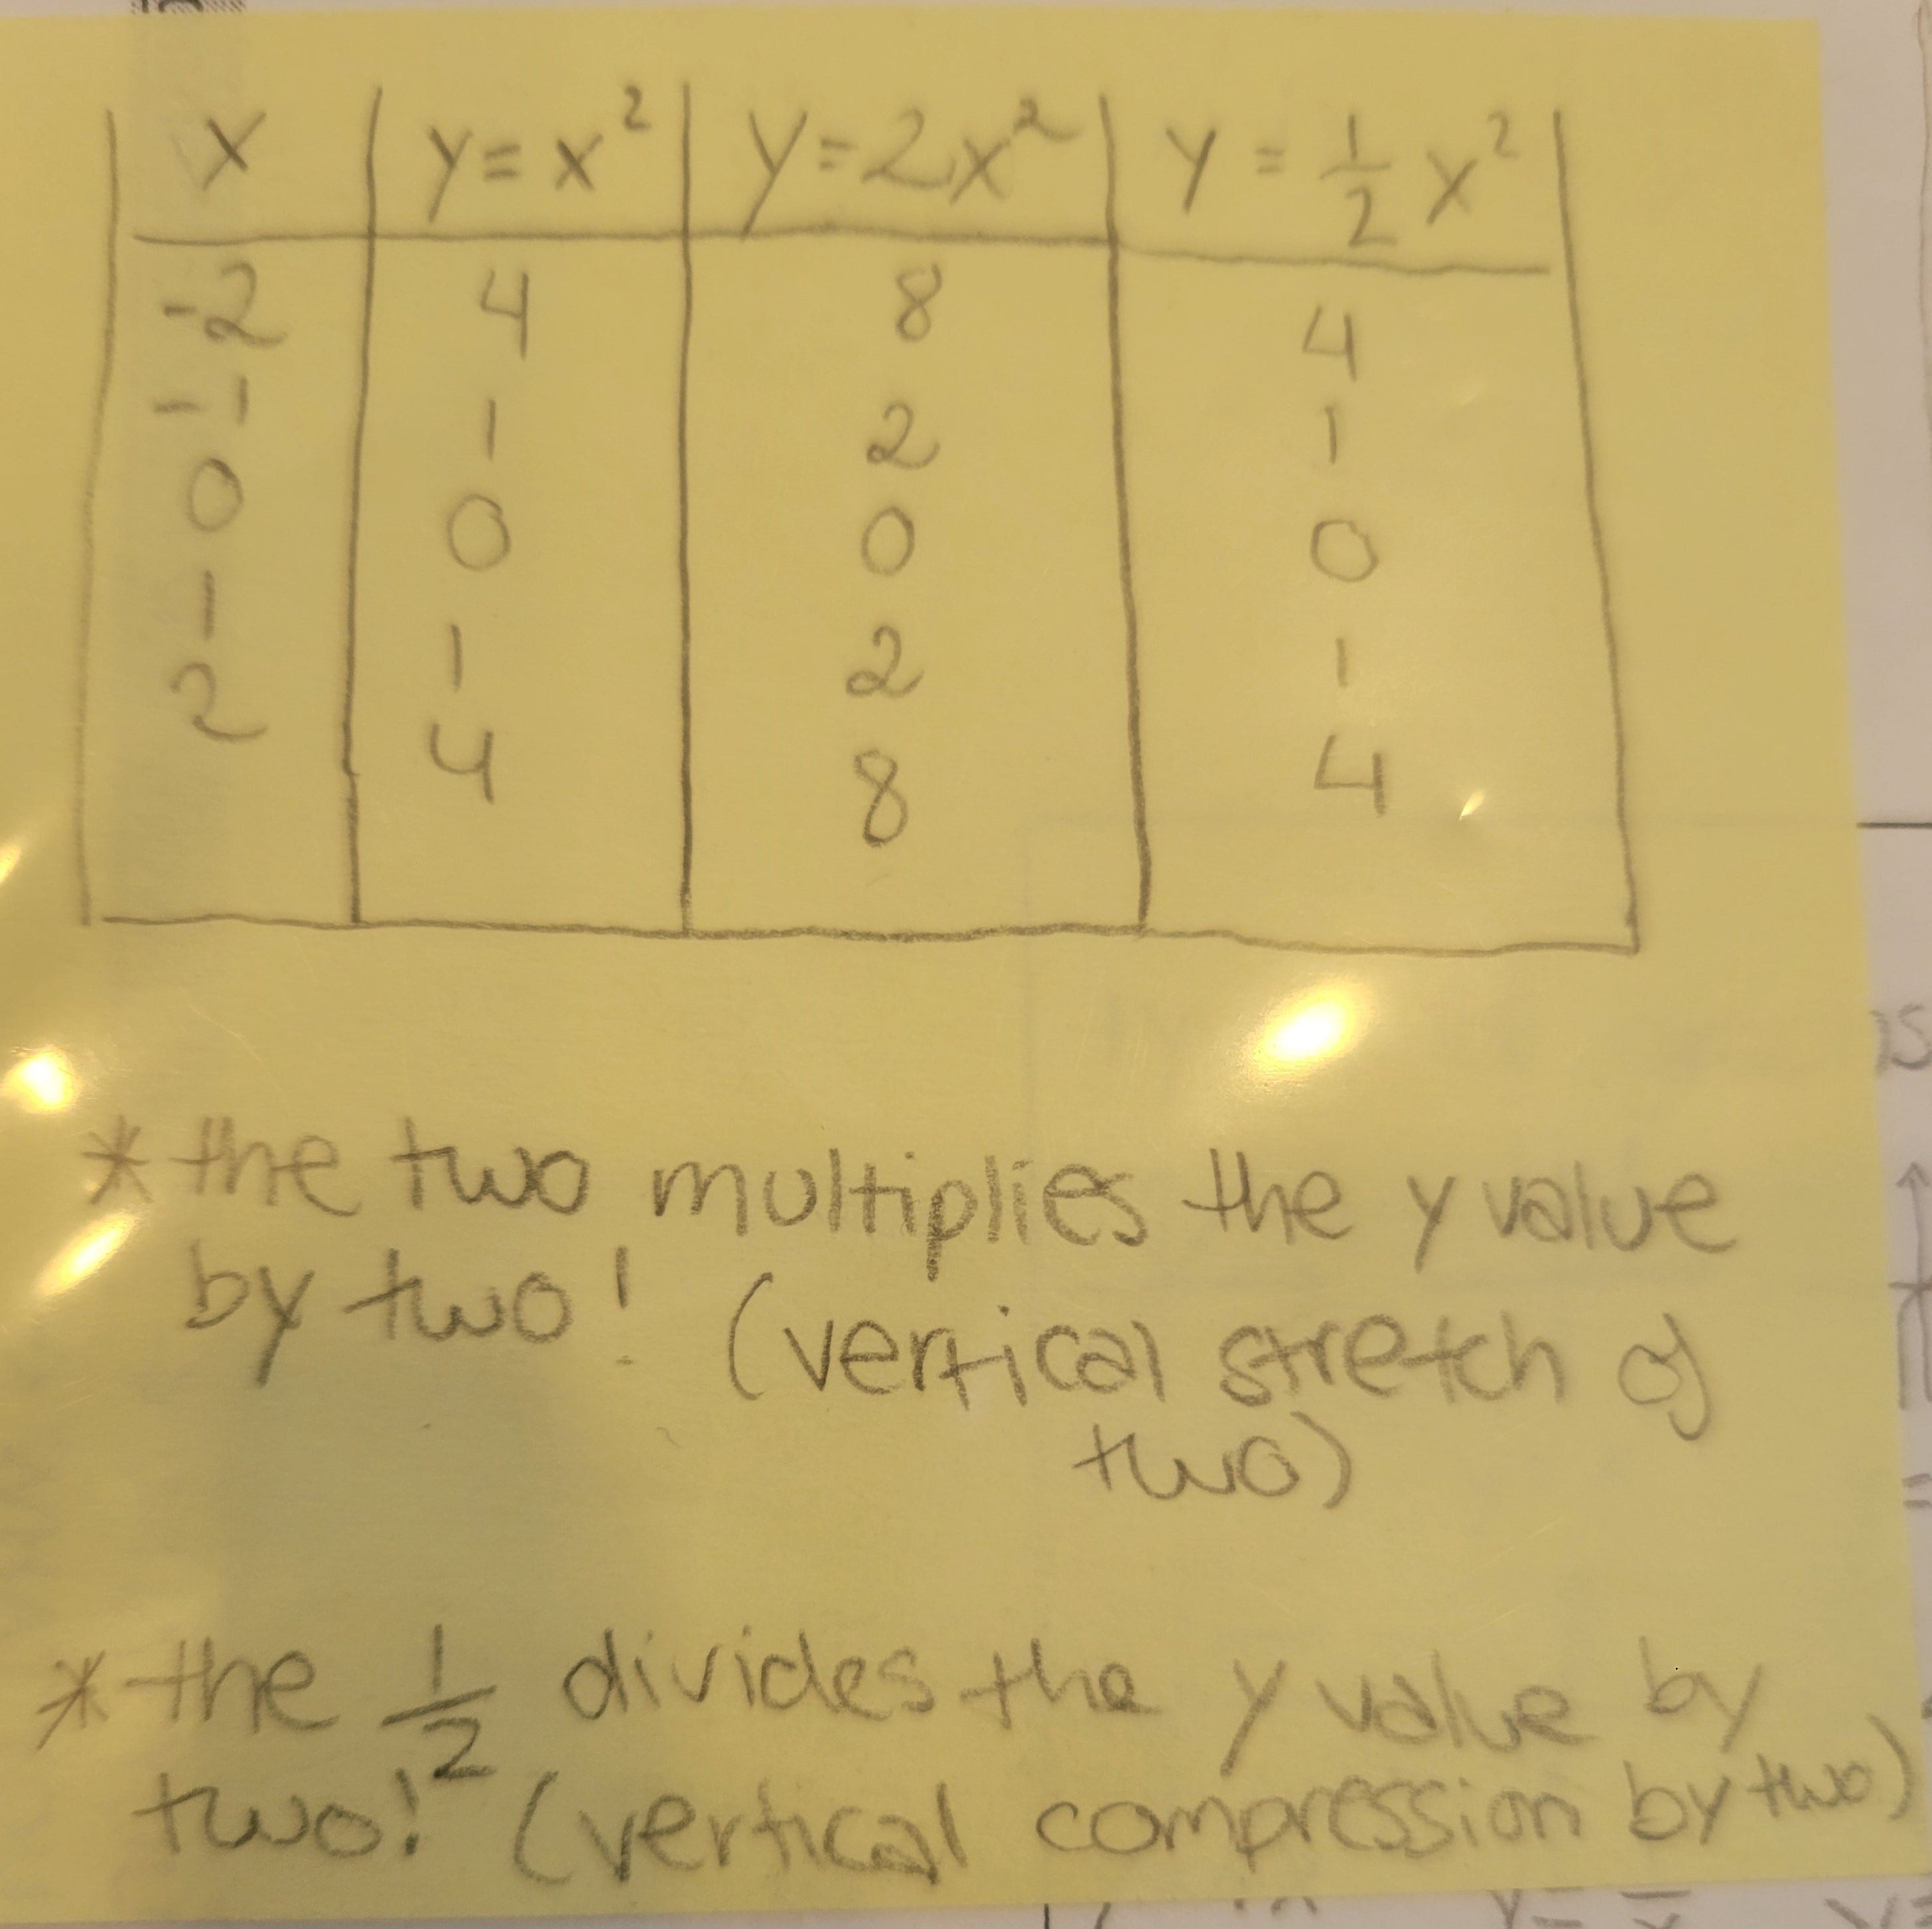 x y = x² y = 2x² y = 1/2 x²
-2 4 8 4
-1 1 2 1
0 0 0 0
1 1 2 1
2 4 8 4
* the two multiplies the y value
by two! (vertical stretch of
two)
* the 1/2 divides the y value by
two! (vertical compression by two)